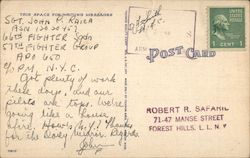 THIS SPACE FOR WRITING MESSAGES
SGT. JOHN M. KAIEA
ASN 12020457
66TH FIGHTER SQDN
57TH FIGHTER GROUP
APO 650
% PM, N.Y.C.
Got plenty of work
these days, and our
pilots are tops. We're
going like a house
afire. How's N.Y.? Thanks
for the
Regards
John
POST CARD
1 CENT 1
ROBERT R. SAFARIL
71-47 MANSE STREET
FOREST HILLS, L. I., N. Y.